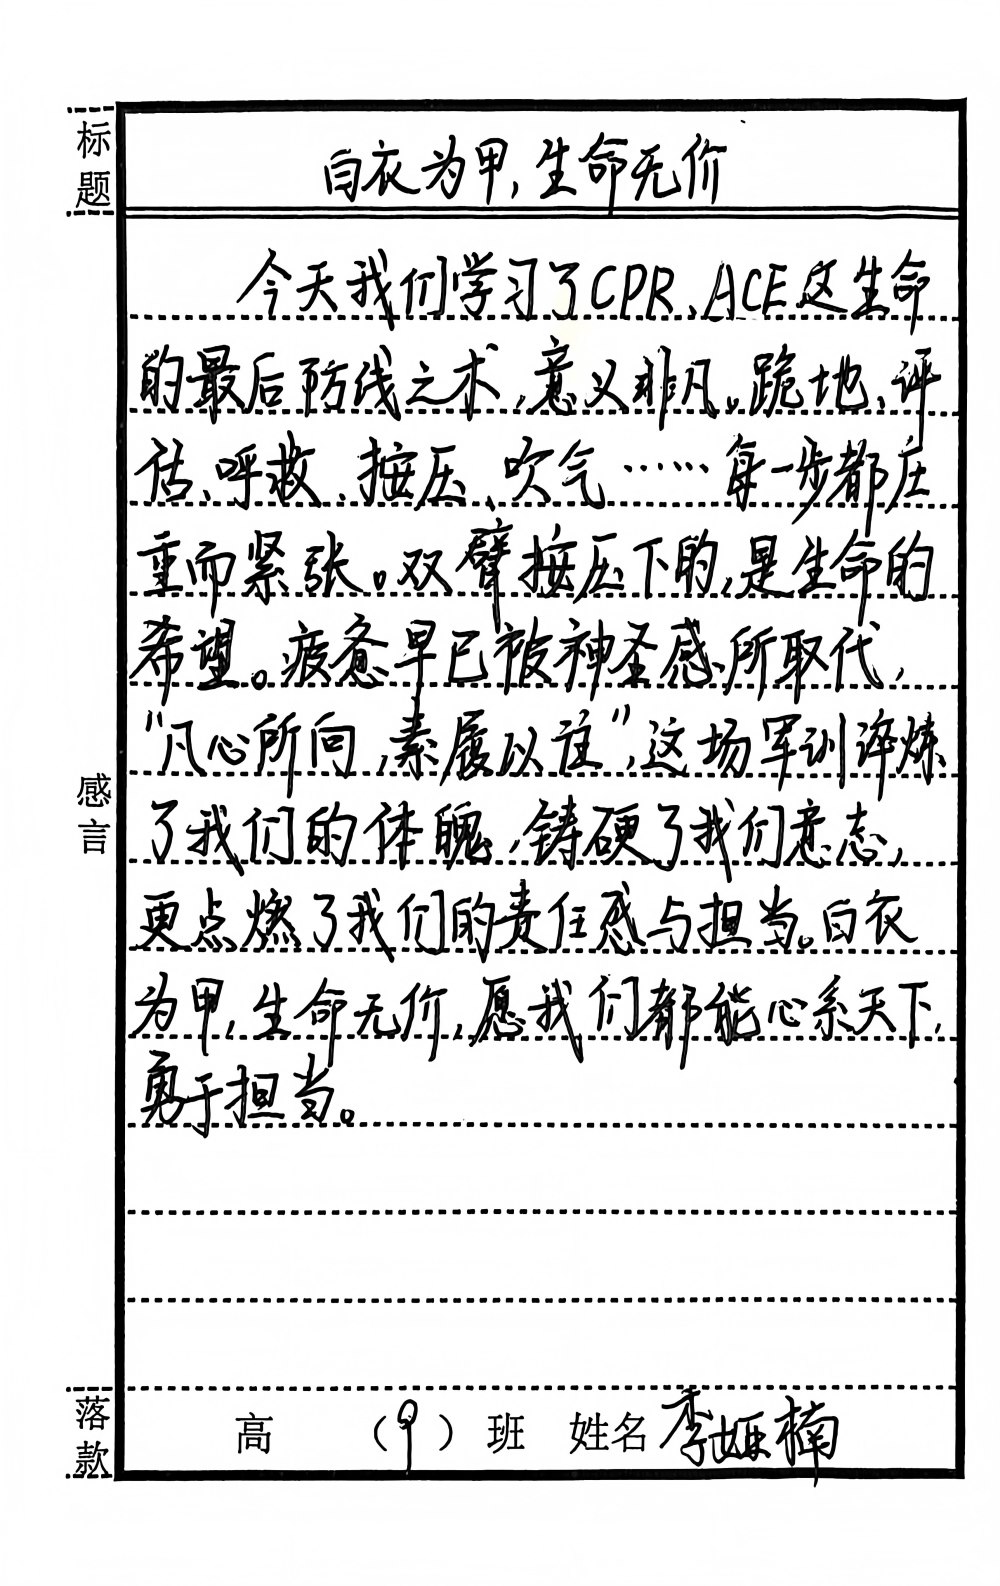 标题
白衣为甲,生命无价
今天我们学习了CPR、ACE这生命
的最后防线之术,意义非凡。跪地、评
估、呼救、按压、吹气……每一步都庄
重而紧张。双臂按压下的,是生命的
希望。疲惫早已被神圣感所取代,
“凡心所向,素履以往”,这场军训淬炼
了我们的体魄,铸硬了我们意志,
更点燃了我们的责任感与担当。白衣
为甲,生命无价,愿我们都能心系天下,
勇于担当。
感言
落款
高 (9)班 姓名 李楠